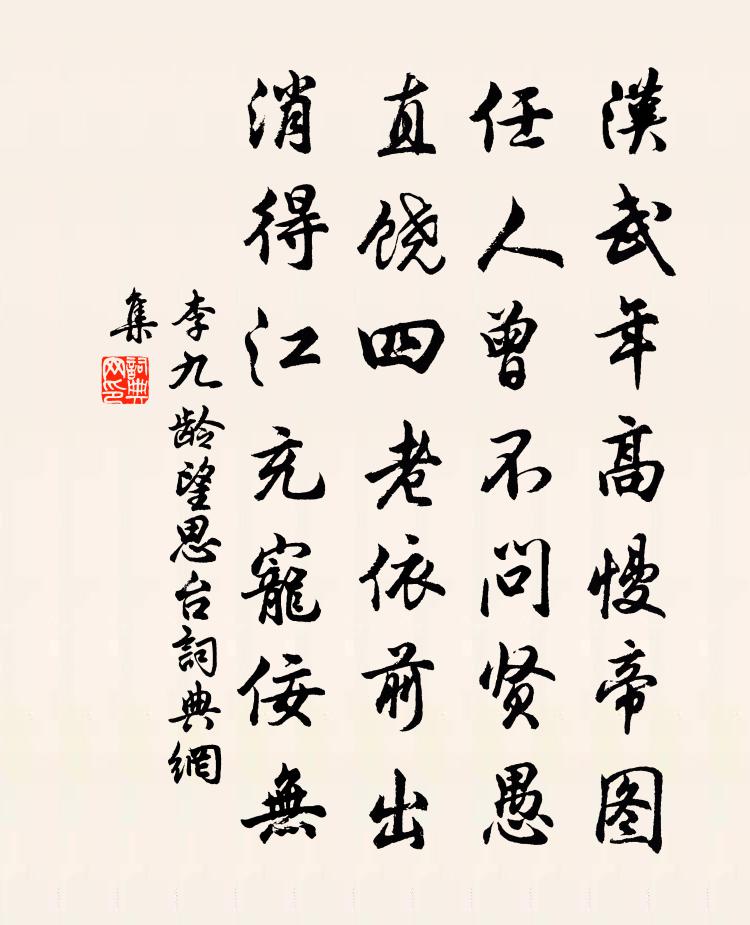 漢武年高慢帝图
任人曾不问贤愚
直饶四老依前出
消得江充寵佞無
李九龄望思台詞典網
集
詞典网印